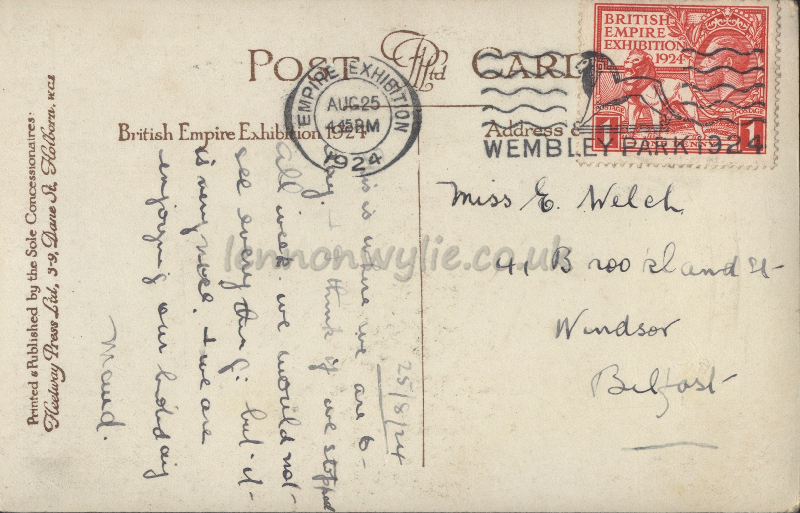 POST CARD
British Empire Exhibition 1924
Address
EMPIRE EXHIBITION
AUG 25
4 45 PM
1924
BRITISH
EMPIRE
EXHIBITION
1924
POSTAGE
POSTAGE
1
1
WEMBLEY PARK 1924
Miss E. Welch
41 Brookland St
Windsor
Belfast
25/8/24
is is where we are to-
day. I think if we stopped
all week we would not
see everything; but it
is very nice. & we are
enjoying our holiday
Maud.
Printed & Published by the Sole Concessionaires:
Fleetway Press Ltd, 3-9, Dane St, Holborn, W.C.2
lennonwylie.co.uk